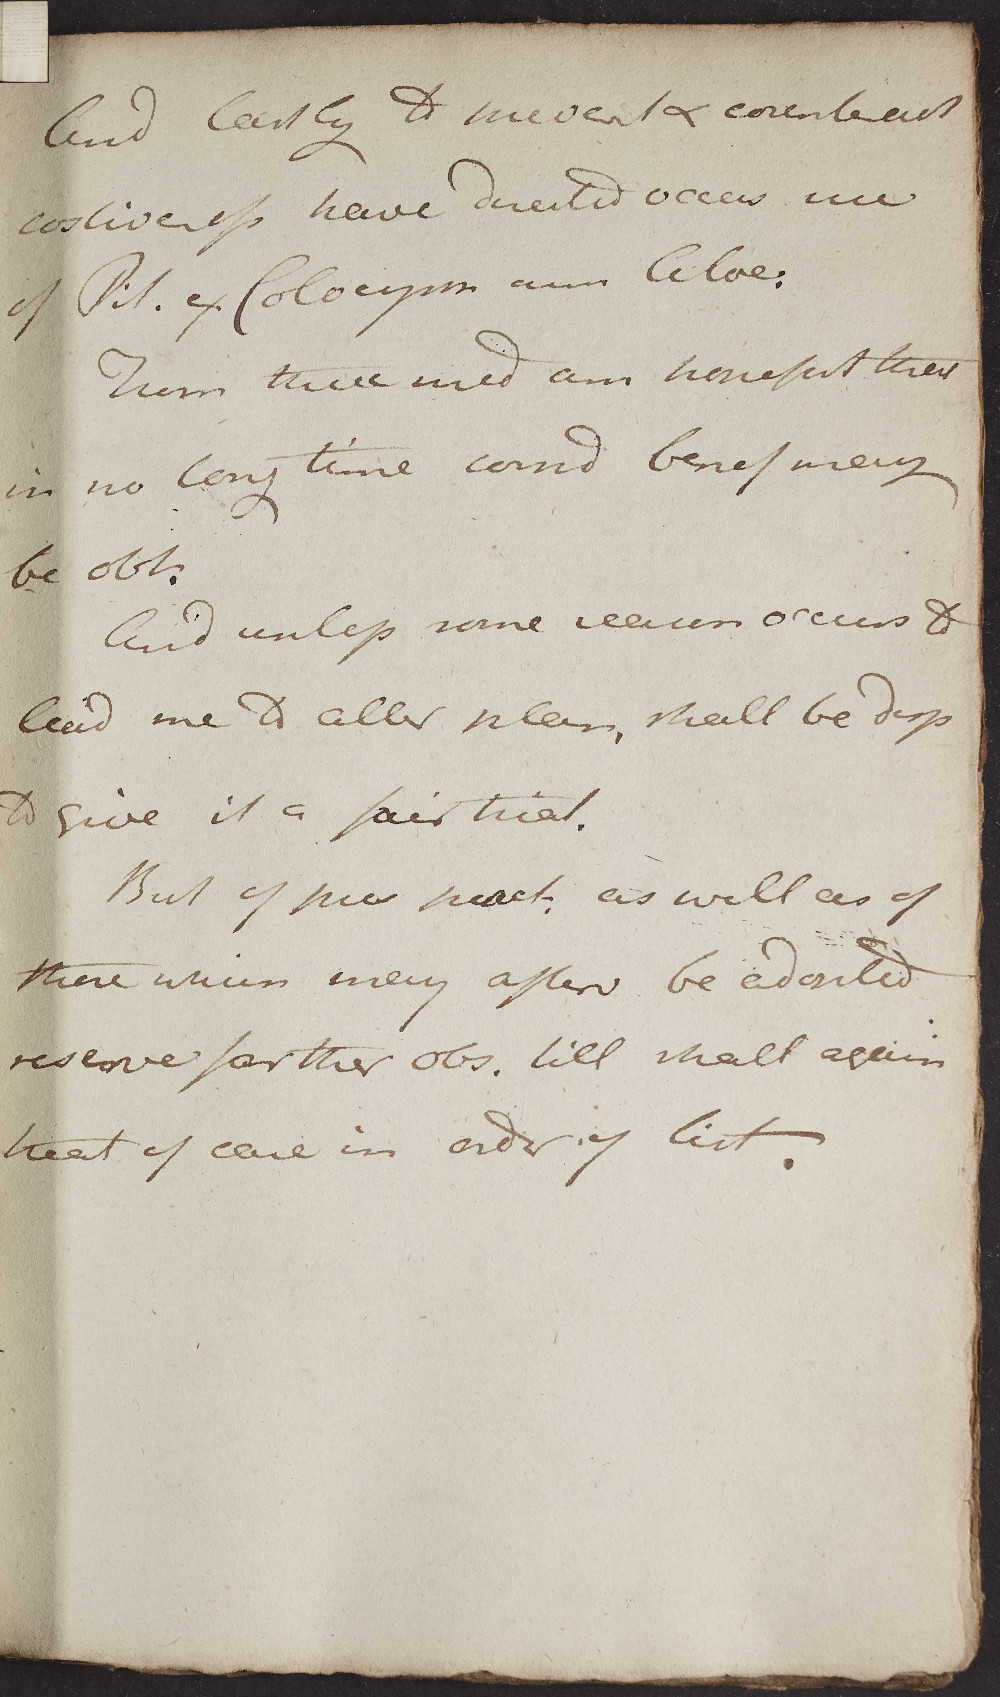 And lastly to prevent & counteract
costiveness have directed occas use
of Pil. ex Colocynth cum Aloe.
From these med am hopeful that
in no long time consid benef may
be obt.
And unless some reason occurs to
lead me to alter plan, shall be disp
to give it a fair trial.
But of pres pract. as well as of
those which may afterw be adopted
reserve farther obs. till shall again
treat of case in order of list.